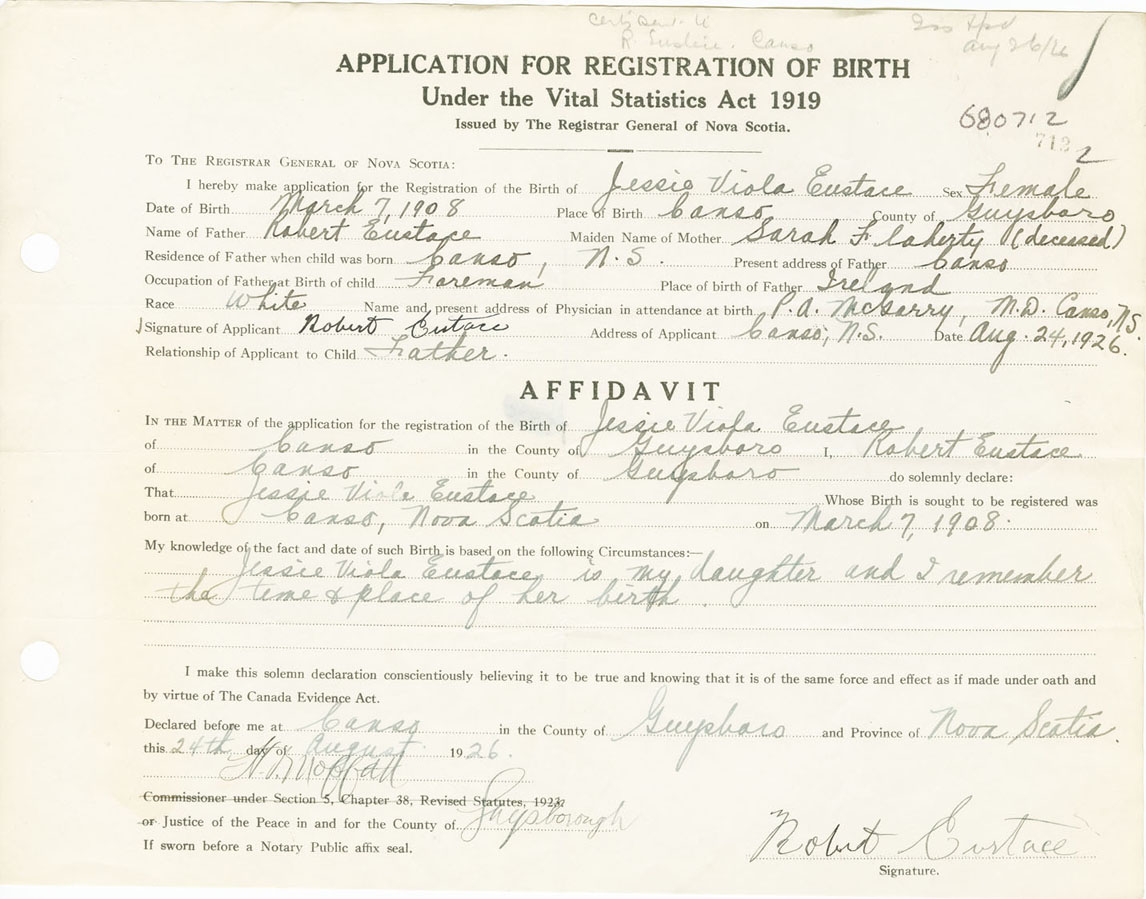 R. Eustice. Canso
Aug 26/26
APPLICATION FOR REGISTRATION OF BIRTH
Under the Vital Statistics Act 1919
Issued by The Registrar General of Nova Scotia.
680712
712 2
TO THE REGISTRAR GENERAL OF NOVA SCOTIA:
I hereby make application for the Registration of the Birth of Jessie Viola Eustace Sex Female
Date of Birth March 7, 1908 Place of Birth Canso County of Guysboro
Name of Father Robert Eustace Maiden Name of Mother Sarah Flaherty (deceased)
Residence of Father when child was born Canso, N.S. Present address of Father Canso
Occupation of Father at Birth of child Foreman Place of birth of Father Ireland
Race White Name and present address of Physician in attendance at birth P. A. McGarry, M.D. Canso, N.S.
Signature of Applicant Robert Eustace Address of Applicant Canso, N.S. Date Aug. 24, 1926.
Relationship of Applicant to Child Father.
AFFIDAVIT
IN THE MATTER of the application for the registration of the Birth of Jessie Viola Eustace
of Canso in the County of Guysboro I, Robert Eustace
of Canso in the County of Guysboro do solemnly declare:
That Jessie Viola Eustace Whose Birth is sought to be registered was
born at Canso, Nova Scotia on March 7, 1908.
My knowledge of the fact and date of such Birth is based on the following Circumstances:—
Jessie Viola Eustace is my daughter and I remember
the time & place of her birth.
I make this solemn declaration conscientiously believing it to be true and knowing that it is of the same force and effect as if made under oath and
by virtue of The Canada Evidence Act.
Declared before me at Canso in the County of Guysboro and Province of Nova Scotia.
this 24th day of August 1926.
Commissioner under Section 5, Chapter 38, Revised Statutes, 1923,
or Justice of the Peace in and for the County of Guysborough
If sworn before a Notary Public affix seal.
Robert Eustace
Signature.